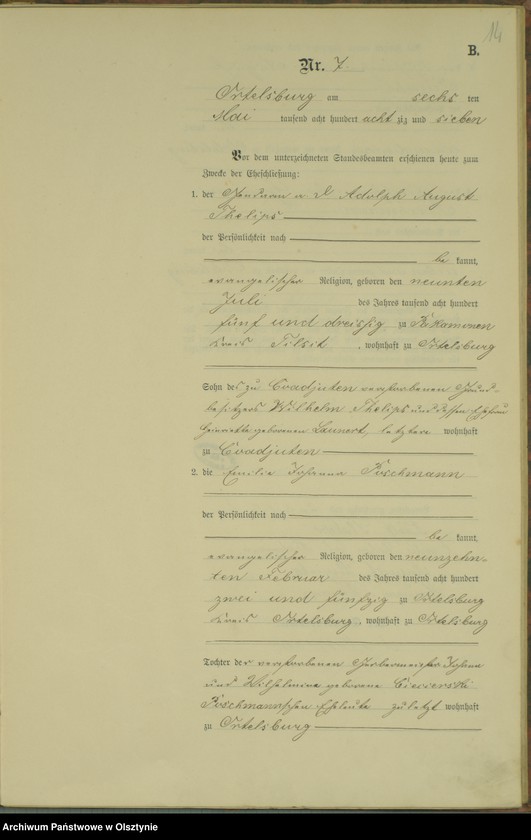 14
B.
Nr. 7
Ortelsburg am sechs ten
Mai tausend acht hundert acht zig und sieben
Vor dem unterzeichneten Standesbeamten erschienen heute zum
Zwecke der Eheschließung:
1. der Gendarm a D Adolph August
Thelips
der Persönlichkeit nach
be kannt,
evangelischer Religion, geboren den neunten
Juli des Jahres tausend acht hundert
fünf und dreißig zu
Kreis Tilsit, wohnhaft zu Ortelsburg
Sohn des zu Coadjuten verstorbenen Grund-
besitzers Wilhelm Thelips und dessen Ehefrau
Henriette geborenen Launert, letztere wohnhaft
zu Coadjuten
2. die Emilie Johanna Poschmann
der Persönlichkeit nach
be kannt,
evangelischer Religion, geboren den neunzehn-
ten Februar des Jahres tausend acht hundert
zwei und fünfzig zu Ortelsburg
Kreis Ortelsburg, wohnhaft zu Ortelsburg
Tochter der verstorbenen Gerbermeister Johann
und Wilhelmine geborene
Poschmannschen Eheleute zuletzt wohnhaft
zu Ortelsburg
Archiwum Państwowe w Olsztynie